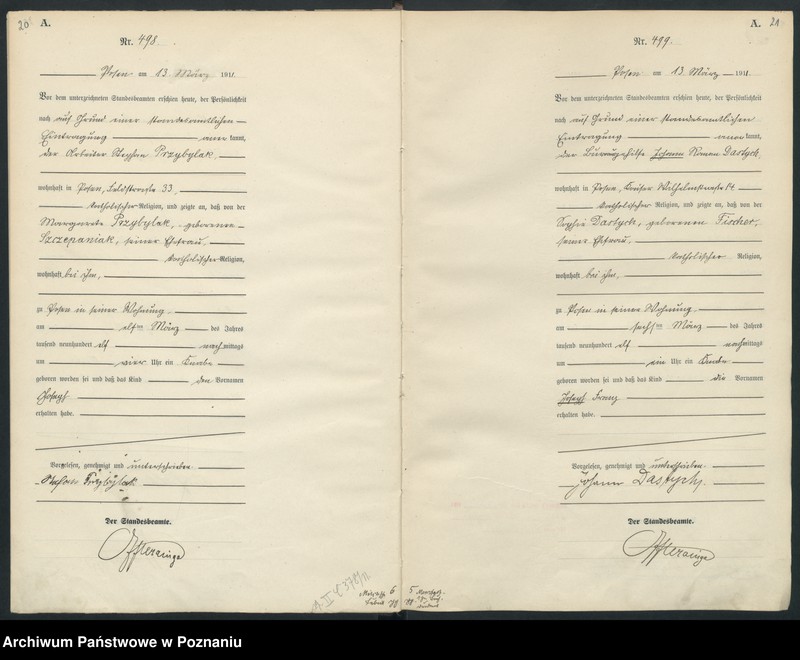 20
A.
Nr. 498.
Posen am 13. März 1911
Vor dem unterzeichneten Standesbeamten erschien heute, der Persönlichkeit
nach auf Grund einer standesamtlichen
Eintragung anerkannt,
der Arbeiter Stephan Przybylak,
wohnhaft in Posen, Feldstraße 33,
katholischer Religion, und zeigte an, daß von der
Margarete Przybylak, geborenen
Szczepaniak, seiner Ehefrau,
katholischer Religion,
wohnhaft bei ihm,
zu Posen in seiner Wohnung
am elften März des Jahres
tausend neunhundert elf nachmittags
um vier Uhr ein Knabe
geboren worden sei und daß das Kind den Vornamen
Joseph
erhalten habe.
Vorgelesen, genehmigt und unterschrieben
Przybylak
Der Standesbeamte.
A. 21
Nr. 499.
Posen am 13. März 1911
Vor dem unterzeichneten Standesbeamten erschien heute, der Persönlichkeit
nach auf Grund einer standesamtlichen
Eintragung anerkannt,
der Johann Roman Dastych
wohnhaft in Posen, Kaiser Wilhelmstraße
katholischer Religion, und zeigte an, daß von der
Sophie Dastych, geborenen Fischer,
seiner Ehefrau,
katholischer Religion,
wohnhaft bei ihm,
zu Posen in seiner Wohnung
am sechsten März des Jahres
tausend neunhundert elf nachmittags
um ein Uhr ein Knabe
geboren worden sei und daß das Kind die Vornamen
Joseph Franz
erhalten habe.
Vorgelesen, genehmigt und unterschrieben
Johann Dastych.
Der Standesbeamte.
Archiwum Państwowe w Poznaniu